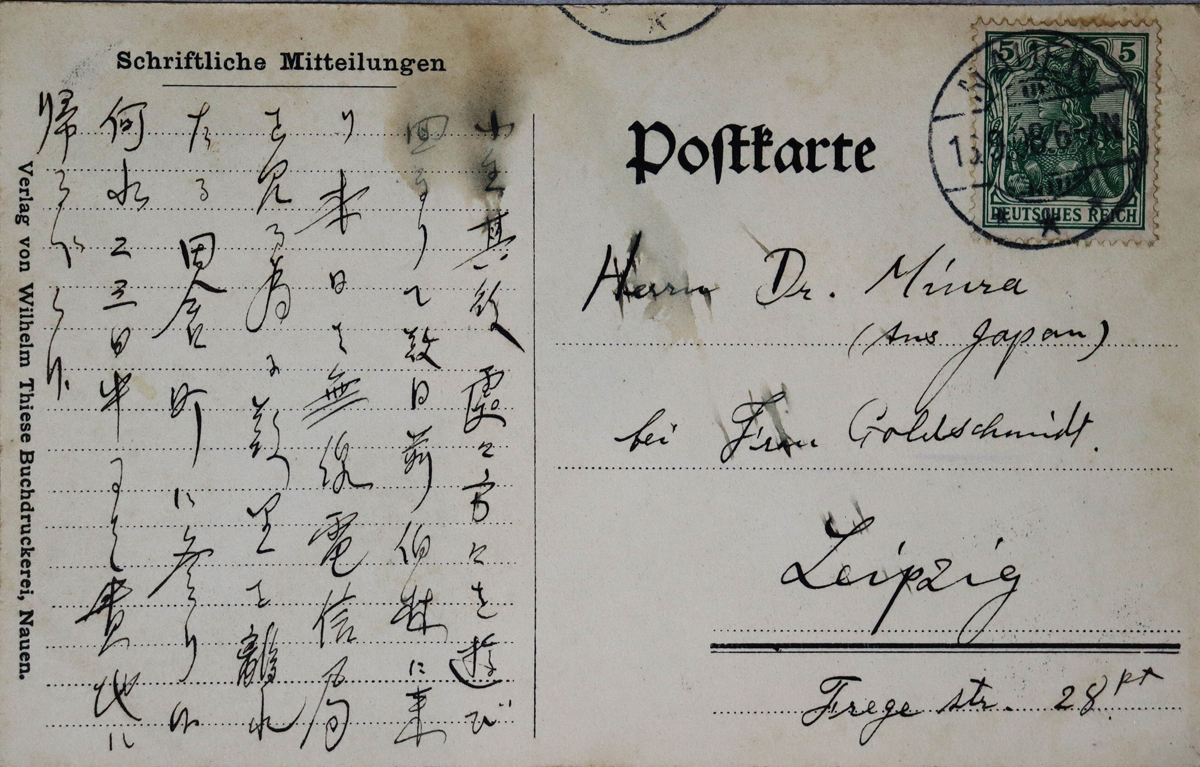 Schriftliche Mitteilungen
小生其後処々方々を遊び
回り数日前伯林に来
り本日は無線電信局
を見る為に数里を離れ
たる田舎町に参り
何れ二三日中には貴地に
帰る
Verlag von Wilhelm Thiese Buchdruckerei, Nauen.
Postkarte
5 5
NAUEN
DEUTSCHES REICH
Herrn Dr. Miura
(aus Japan)
bei Frau Goldschmidt.
Leipzig
Frege str. 28